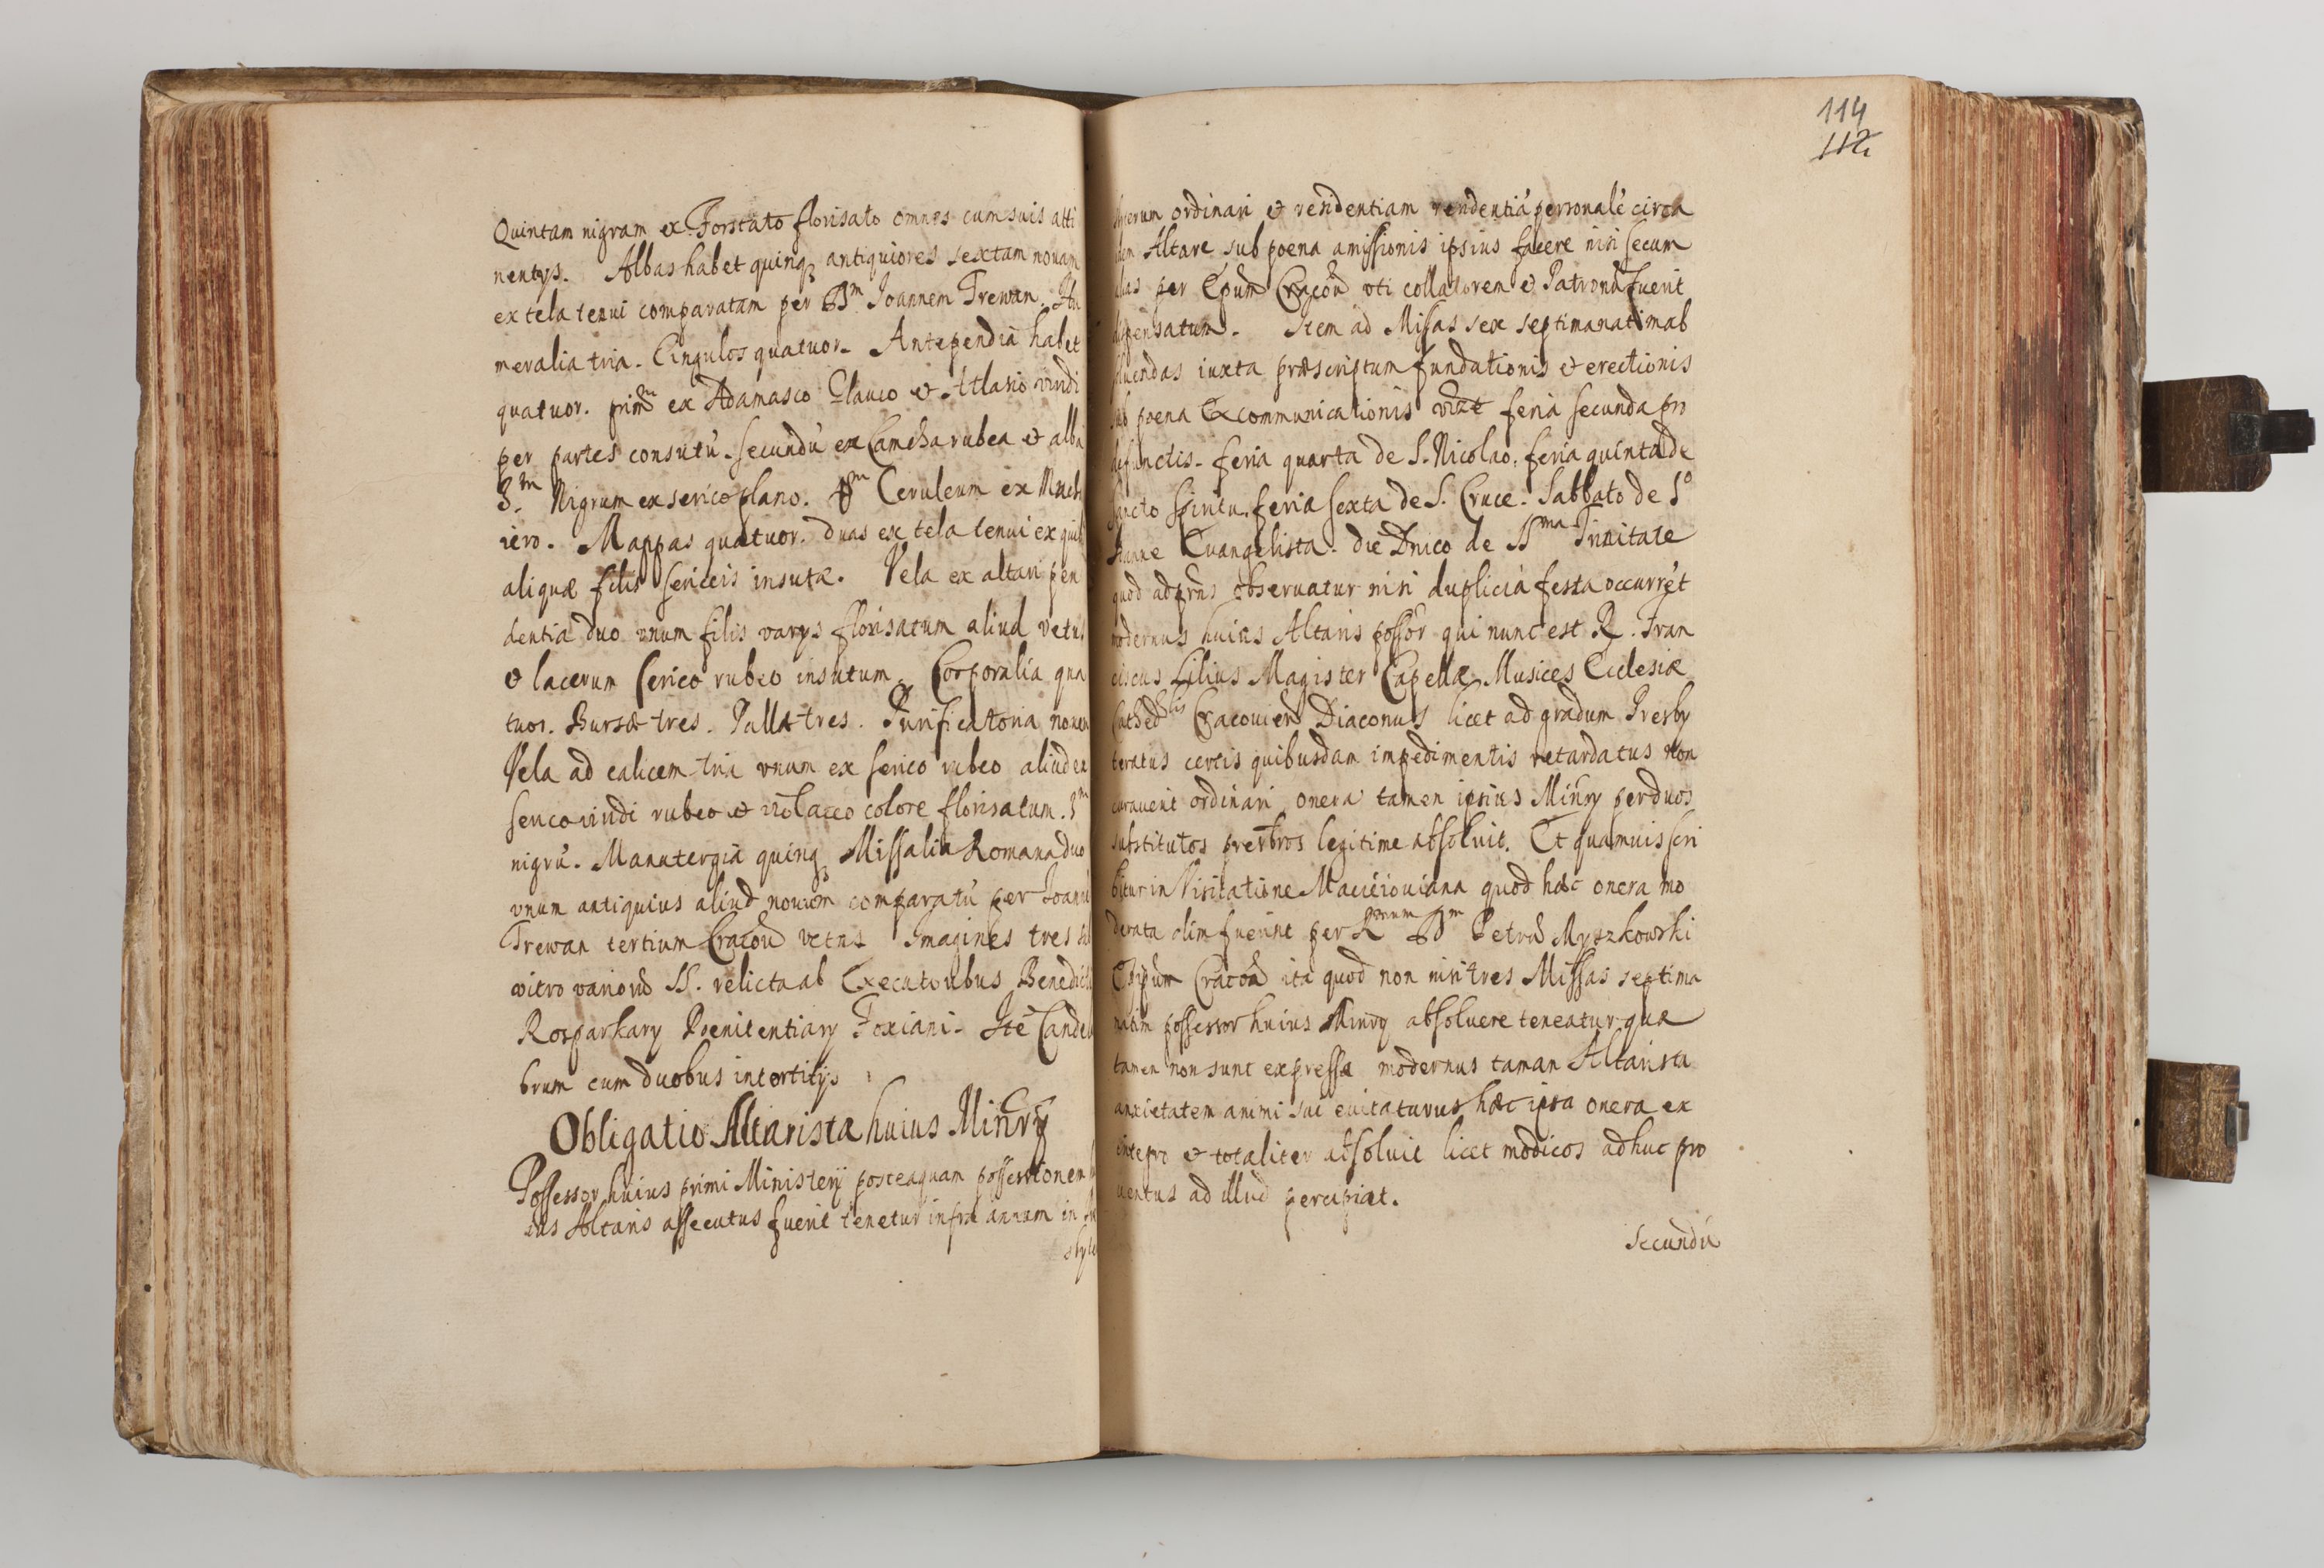 Quintam nigram ex Forstato florisato omnes cum suis atti
nentys. Albas habet quinq; antiquiores sextam novam
ex tela tenui comparatam per Dm Joannem Trewan. Hu
meralia tria. Cingulos quatuor. Antependia habet
quatuor. primu ex Adamasco Glauco et Atlasio viridi
per partes consutú. secundú ex Camcha rubea et alba
3m Nigrum ex serico plano. 4m Ceruleum ex Much
iero. Mappas quatuor. duas ex tela tenui ex quib
aliquæ filis sericeis insutæ. Vela ex altari pen
dentia duo unum filis varys florisatum aliud vetus
et lacerum serico rubeo insutum. Corporalia qua
tuor. Bursæ tres. Pallæ tres. Purificatoria novem
Vela ad calicem tria unum ex serico rubeo aliud ex
serico viridi rubeo et violaceo colore florisatum. 3m
nigrú. Manutergia quinq; Missalia Romana duo
vnum antiquius aliud novum comparatú per Joannē
Trewan tertium Cracou vetus Imagines tres
vitro varioru SS. relicta ab Executoribus Benedicti
Rosparkary Poenitentiary Foxiani. Ité Candela
brum cum duobus intortitys
Obligatio Altarista huius Minrÿ
Possessor huius primi Ministerÿ posteaquam possessionem
ius Altaris assecutus fuerit tenetur infra annum in
sbyte
114
112
rerum ordinari et residentiam rendentiá personalé circa
Altare sub poena amissionis ipsius facere nisi secum
alias per Epum Cracou uti collatorem et Patronú fuerit
dispensatum. Item ad Missas sex septimanatim ab
soluendas iuxta præscriptum fundationis et erectionis
sub poena Excommunicationis vizt feria secunda pro
defunctis. feria quarta de S. Nicolao. feria quinta de
Sancto Spiritu. feria sexta de S. Cruce. Sabbato de So
Evangelista. die Dnico de SSma Trinitate
quod ad prns observatur nisi duplicia festa occurrét
modernus huius Altaris possor qui nunc est R. Fran
ciscus Lilius Magister Capellæ Musices Ecclesiæ
Cathedlis Cracovien Diaconus licet ad gradum Presby
teratus certis quibusdam impedimentis retardatus non
curaverit ordinari onera tamen ipsius Minry per duos
substitutos presbros legitime absoluit. Et quamvis scri
bitur in Visitatione Macieioviana quod hæc onera mo
derata olim fuerint per Rmum Dm Petru Myszkowski
Epum Cracou ita quod non nisi tres Missas septima
natim possessor huius Minry absoluere teneatur quæ
tamen non sunt expressæ modernus taman Altarista
anxietatem animi sui evitaturus hæc ipsa onera ex
integro et totaliter absoluit licet modicos adhuc pro
ventus ad illud percipiat.
Secundú